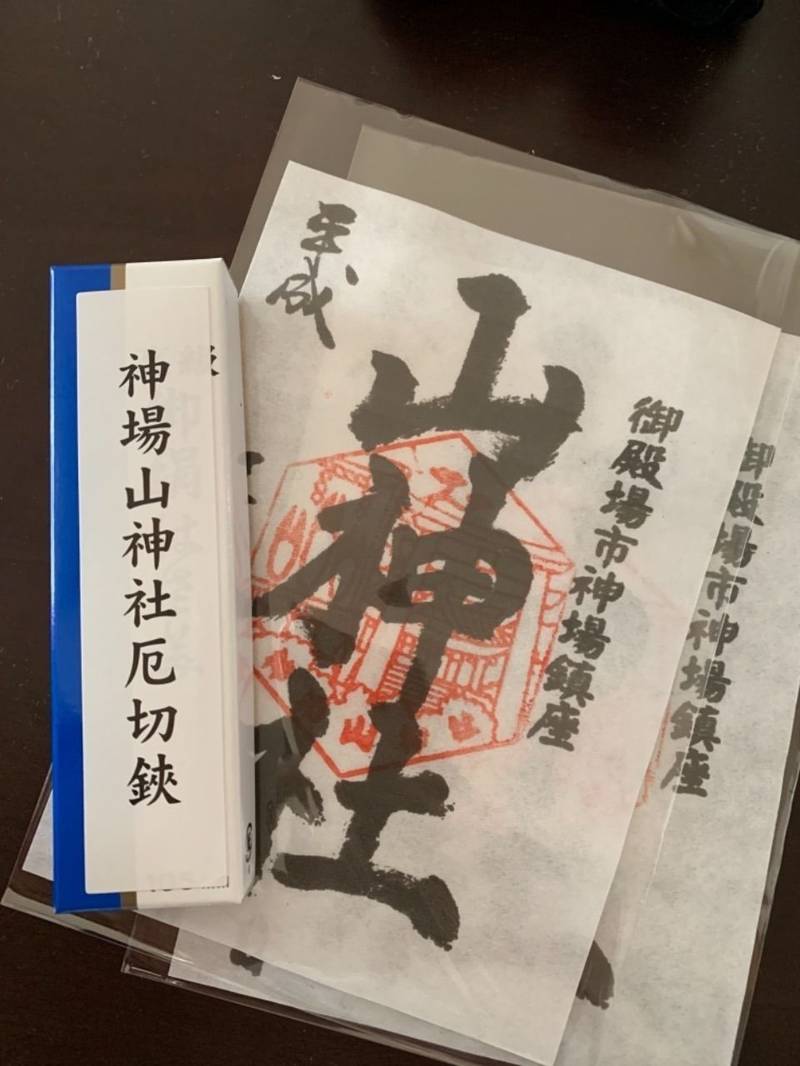 神場山神社厄切鋏
御殿場市神場鎮座
山神社
平成
御殿場市神場鎮座